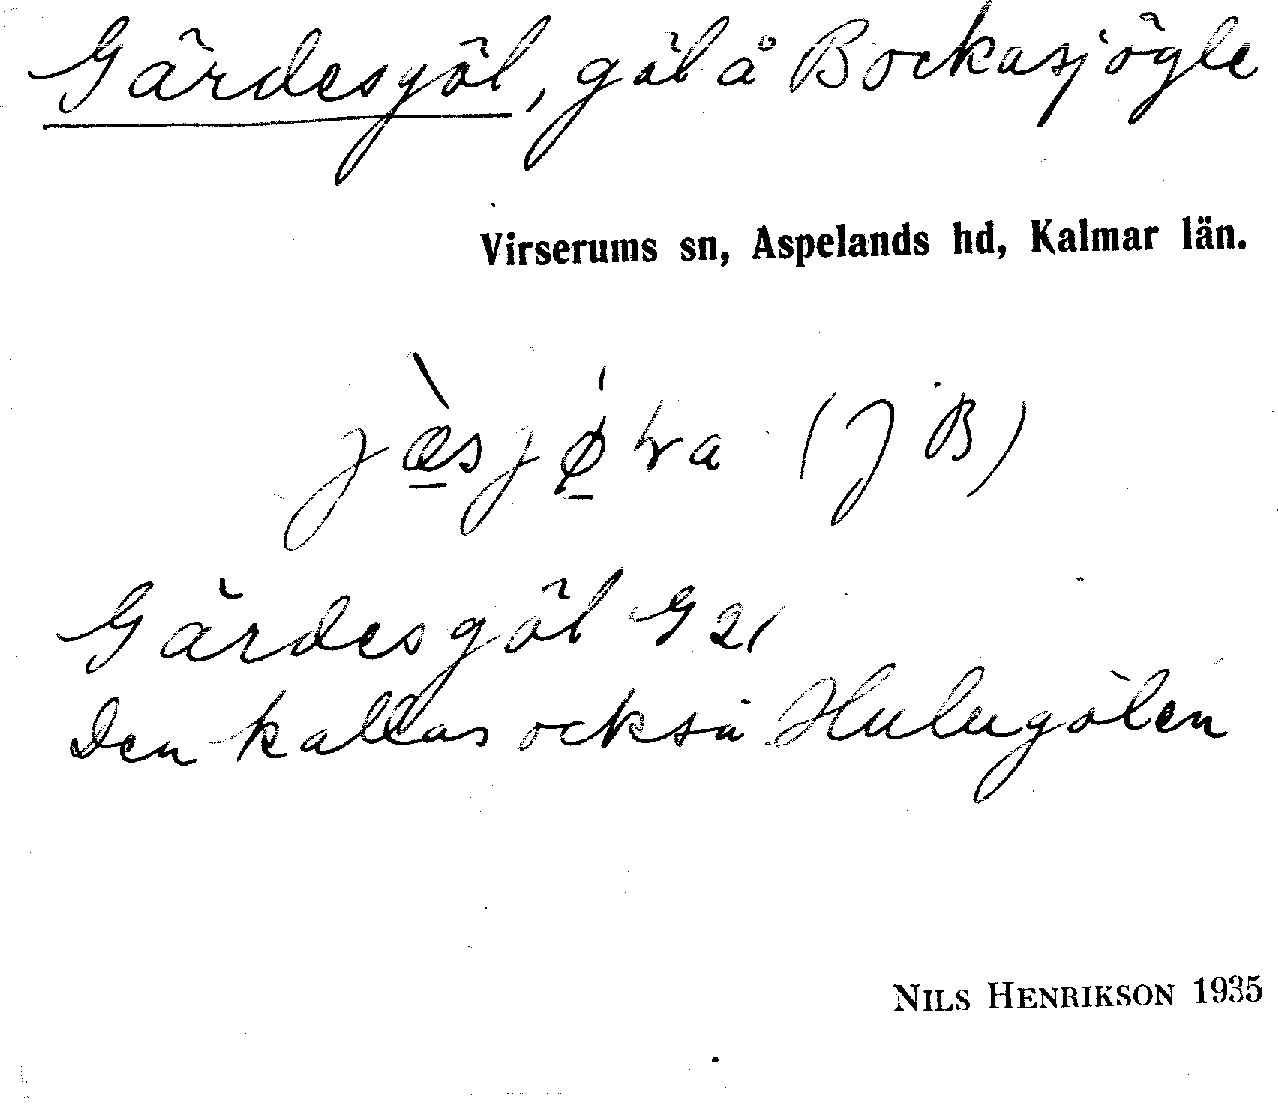 Gärdesgöl, göl å Bockasjögle
Virserums sn, Aspelands hd, Kalmar län.
(J B)
Gärdesgöl G 21
Den kallas också Hulugölen
NILS HENRIKSON 1935